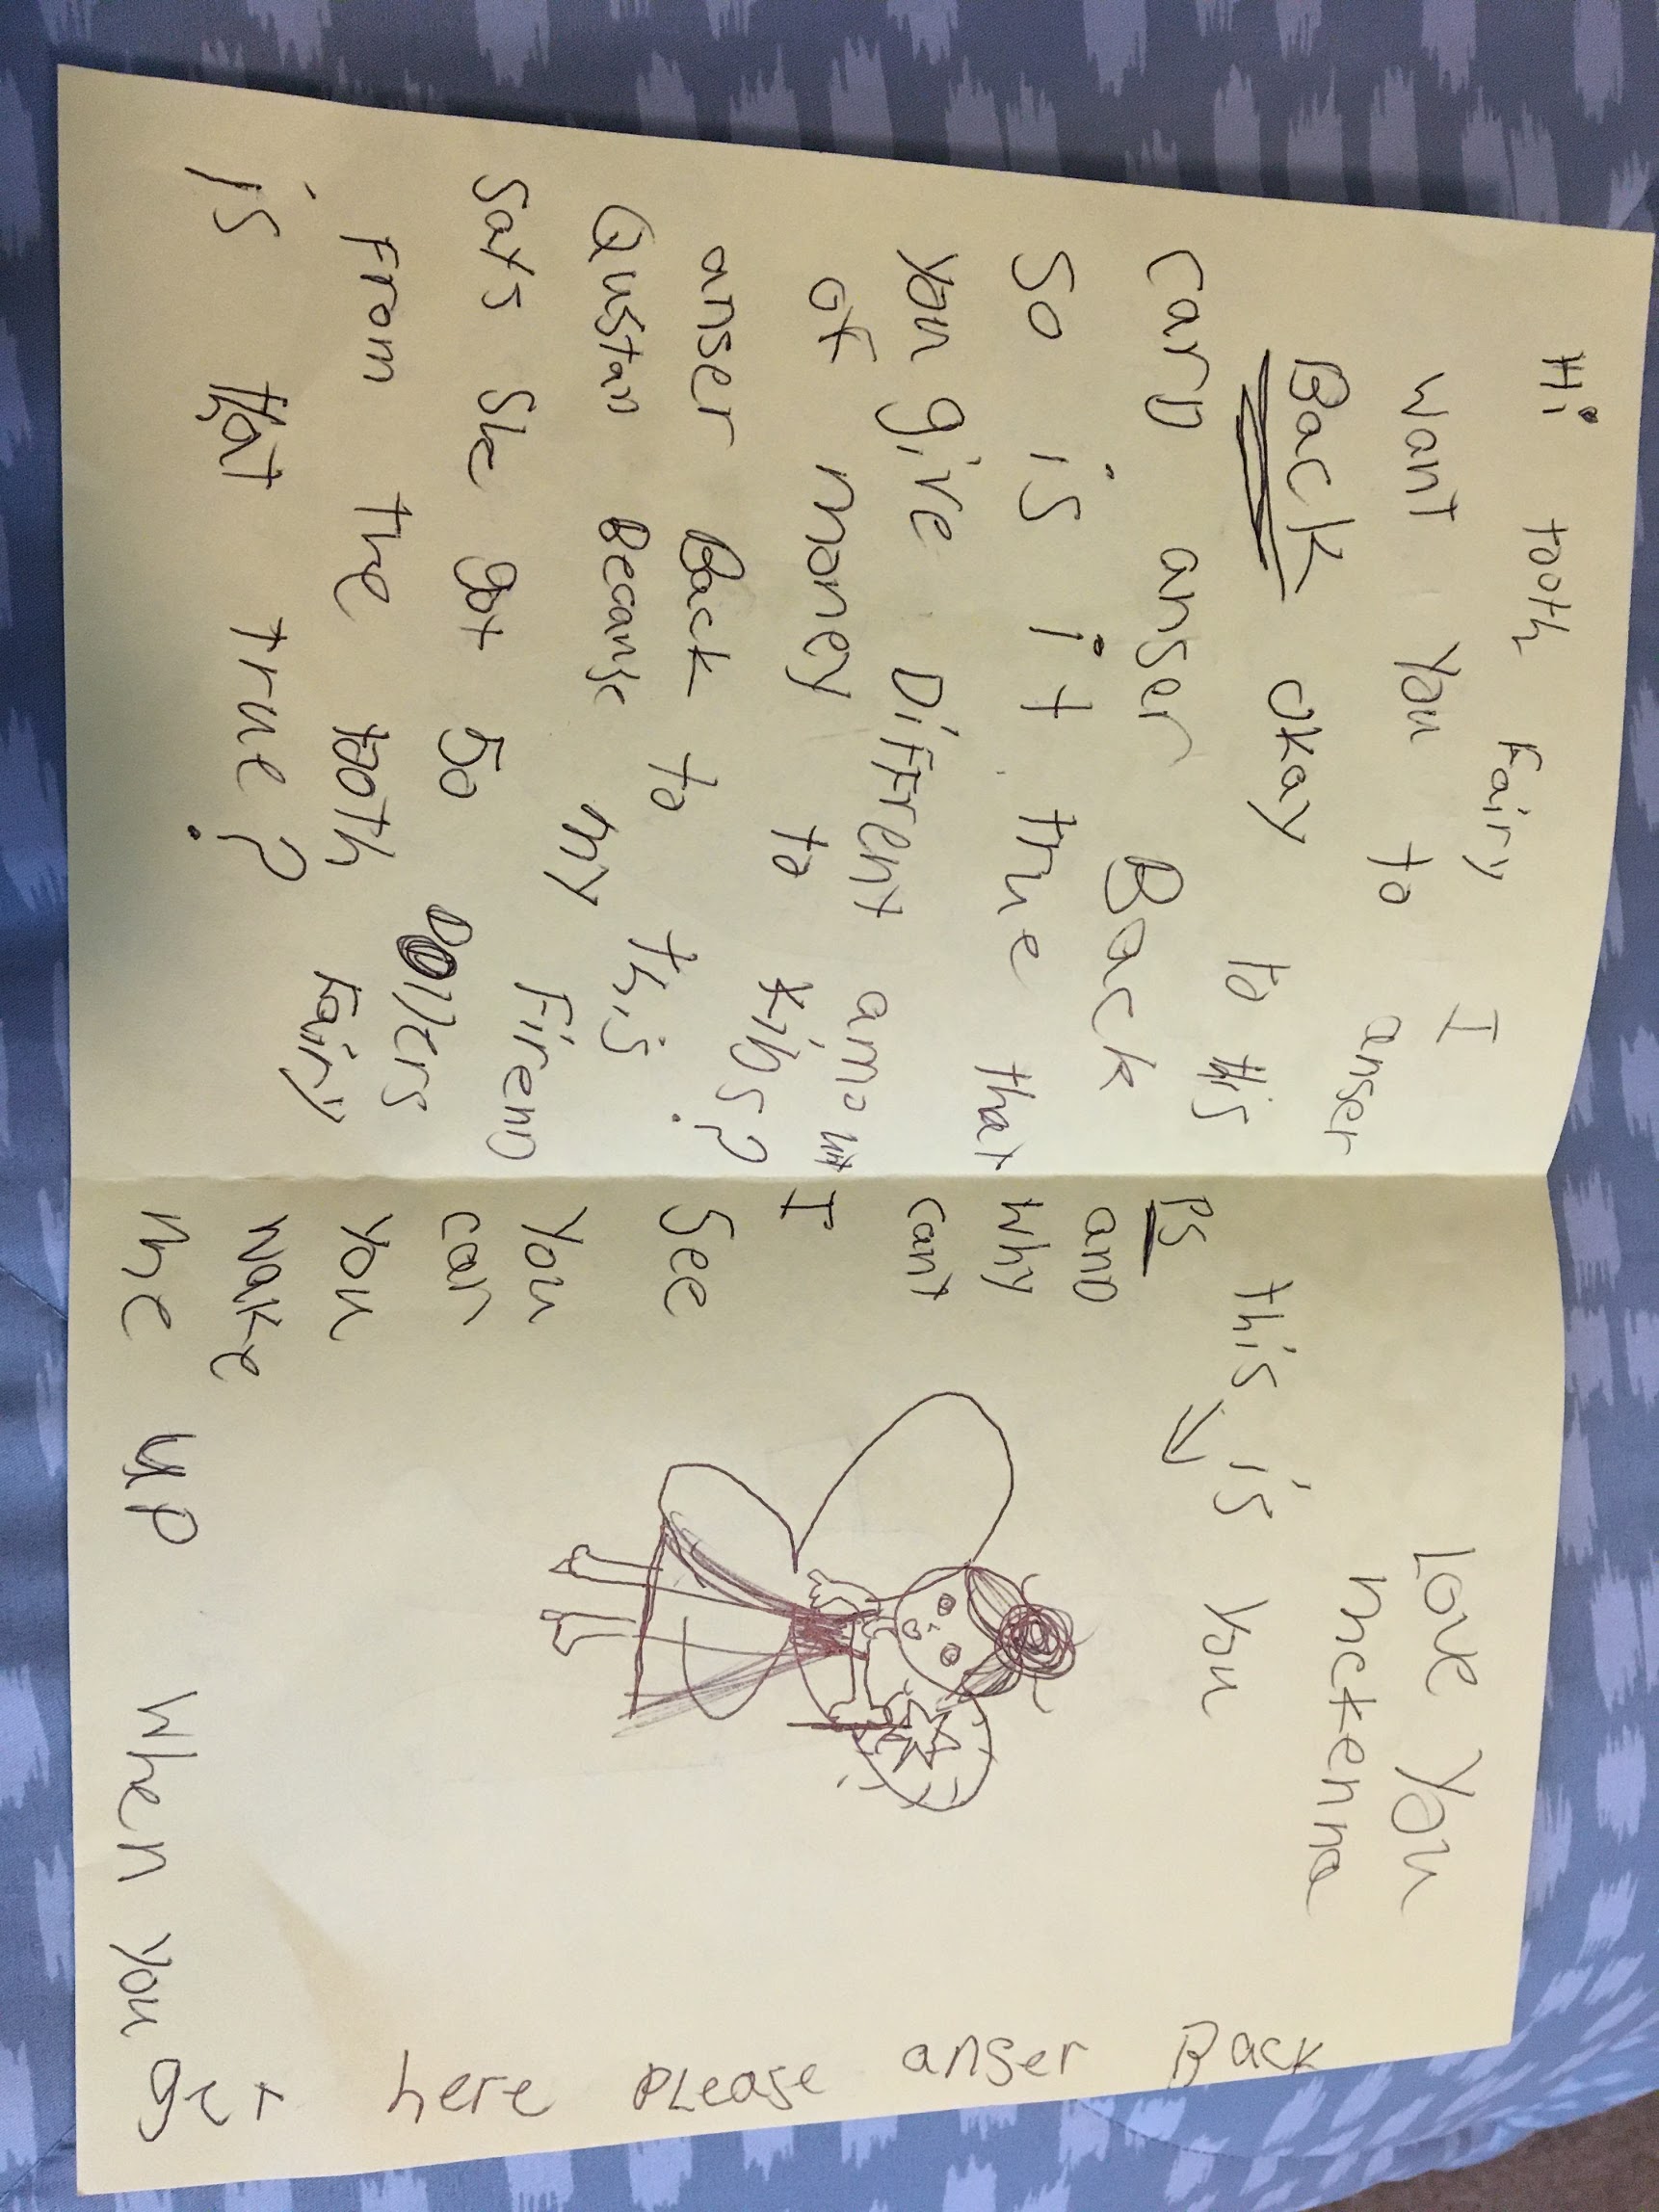 Hi tooth Fairy I
want you to anser
Back okay to this
carD anser Back
So is it true that
You give DiFFrent amount
oF money to kiDs?
anser Back to this
Qustan Because my FirenD
says She got 50 Dollers
From the tooth Fairy
is that true?
Love You
mckenna
this is you
PS
anD
why
cant
I
See
You
can
you
wake
me up when you get here PLease anser Back